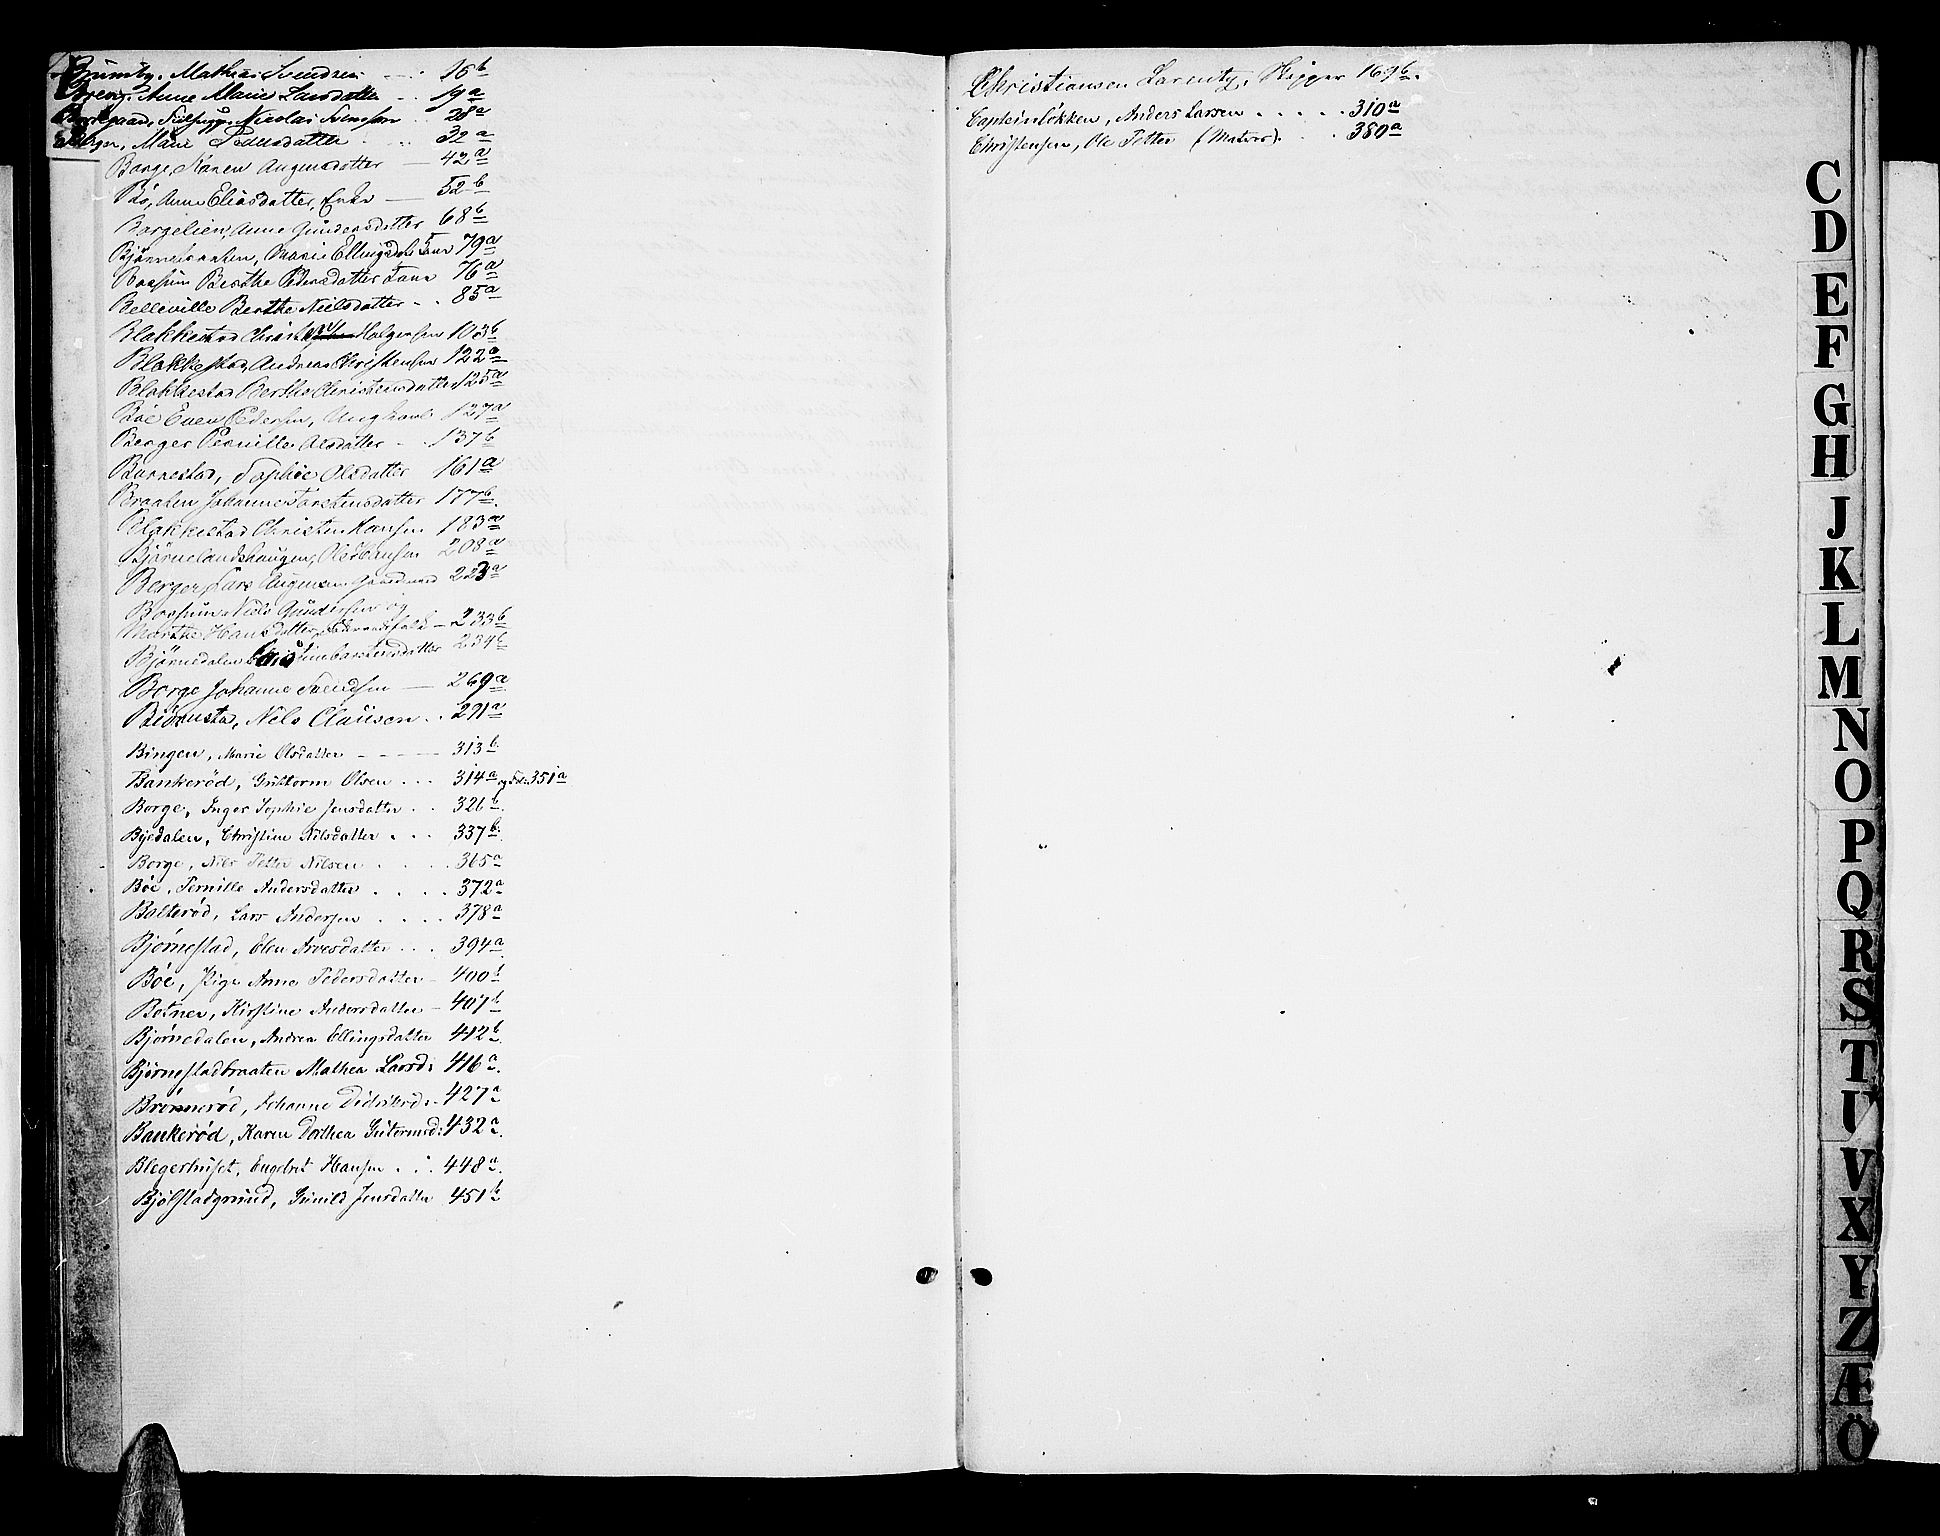 Mathias Svendsen 16b
Anne Marie Larsdatter 19a
Nicolai Svendsen 28a
Berger, Marie Pedersdatter 32a
Borge, Karen Augensdatter 42a
Bö, Anne Eliasdatter, Enke 52b
Borgelien, Anne Gundersdatter 68b
Marie Ellingsdatter 79a
Bossum Berthe Pedersdatter 76a
Belleville Berthe Nielsdatter 85a
Blakkestad Holgersen 103b
Blakkestad, Andreas Christensen 122a
Blakkestad Berthe Christensdatter 125a
Böe Even Pedersen, Ungkarl 127a
Berger Pernille Olsdatter 137b
Sophie Olsdatter 161a
Braaten Johanne Torstensdatter 177b
Blakkestad Christen Hansen 183a
Björnelandshaugen, Ole Hansen 208a
Berger, Lars Augensen Gaardmand 223a
Bossum Niels Gundersen og
Marthe Hansdatter, 233b
Björnedalen Carstensdatter 234b
Borge Johanne Svendsen 269a
Nels Clausen 291a
Bingen, Marie Olsdatter 313b
Bankeröd, Guttorm Olsen 314a og Fol. 351a
Borge, Inger Sophie Jensdatter 326b
Byedalen, Christine Nilsdatter 337b
Borge, Nils Petter Nilsen 365a
Böe, Pernille Andersdatter 372a
Bolteröd, Lars Andersen 378a
Bjørnestad, Elen Arvesdatter 394a
Böe, Pige Anne Pedersdatter 400b
Botner, Kirstine Andersdatter 407b
Bjørnedalen, Andrea Ellingsdatter 412b
Bjørnestadbraaten Mathea Larsd: 416a
Brønnerød, Johanne Didriksd: 427a
Bankerød, Karen Dorthea Gutormsd: 432a
Blegerhuset, Engebret Hansen 448a
Bjølstadgrund, Gunild Jensdatter 451b
Christiansen Laurentz, Skipper 169b
Capteinløkken, Anders Larsen 310a
Christensen, Ole Petter (Matros) 380a
C
D
E
F
G
H
J
K
L
M
N
O
P
Q
R
S
T
U
V
X
Y
Z
Æ
Ö